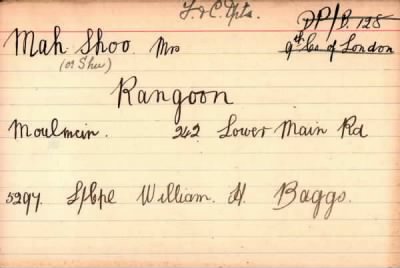 F. & C. Apts.
DP/B. 128
Mah Shoo Mrs
(or Shu)
9th Co of London
Rangoon
Moulmein. 242 Lower Main Rd
5297. L/Cpl William. H. Baggs.